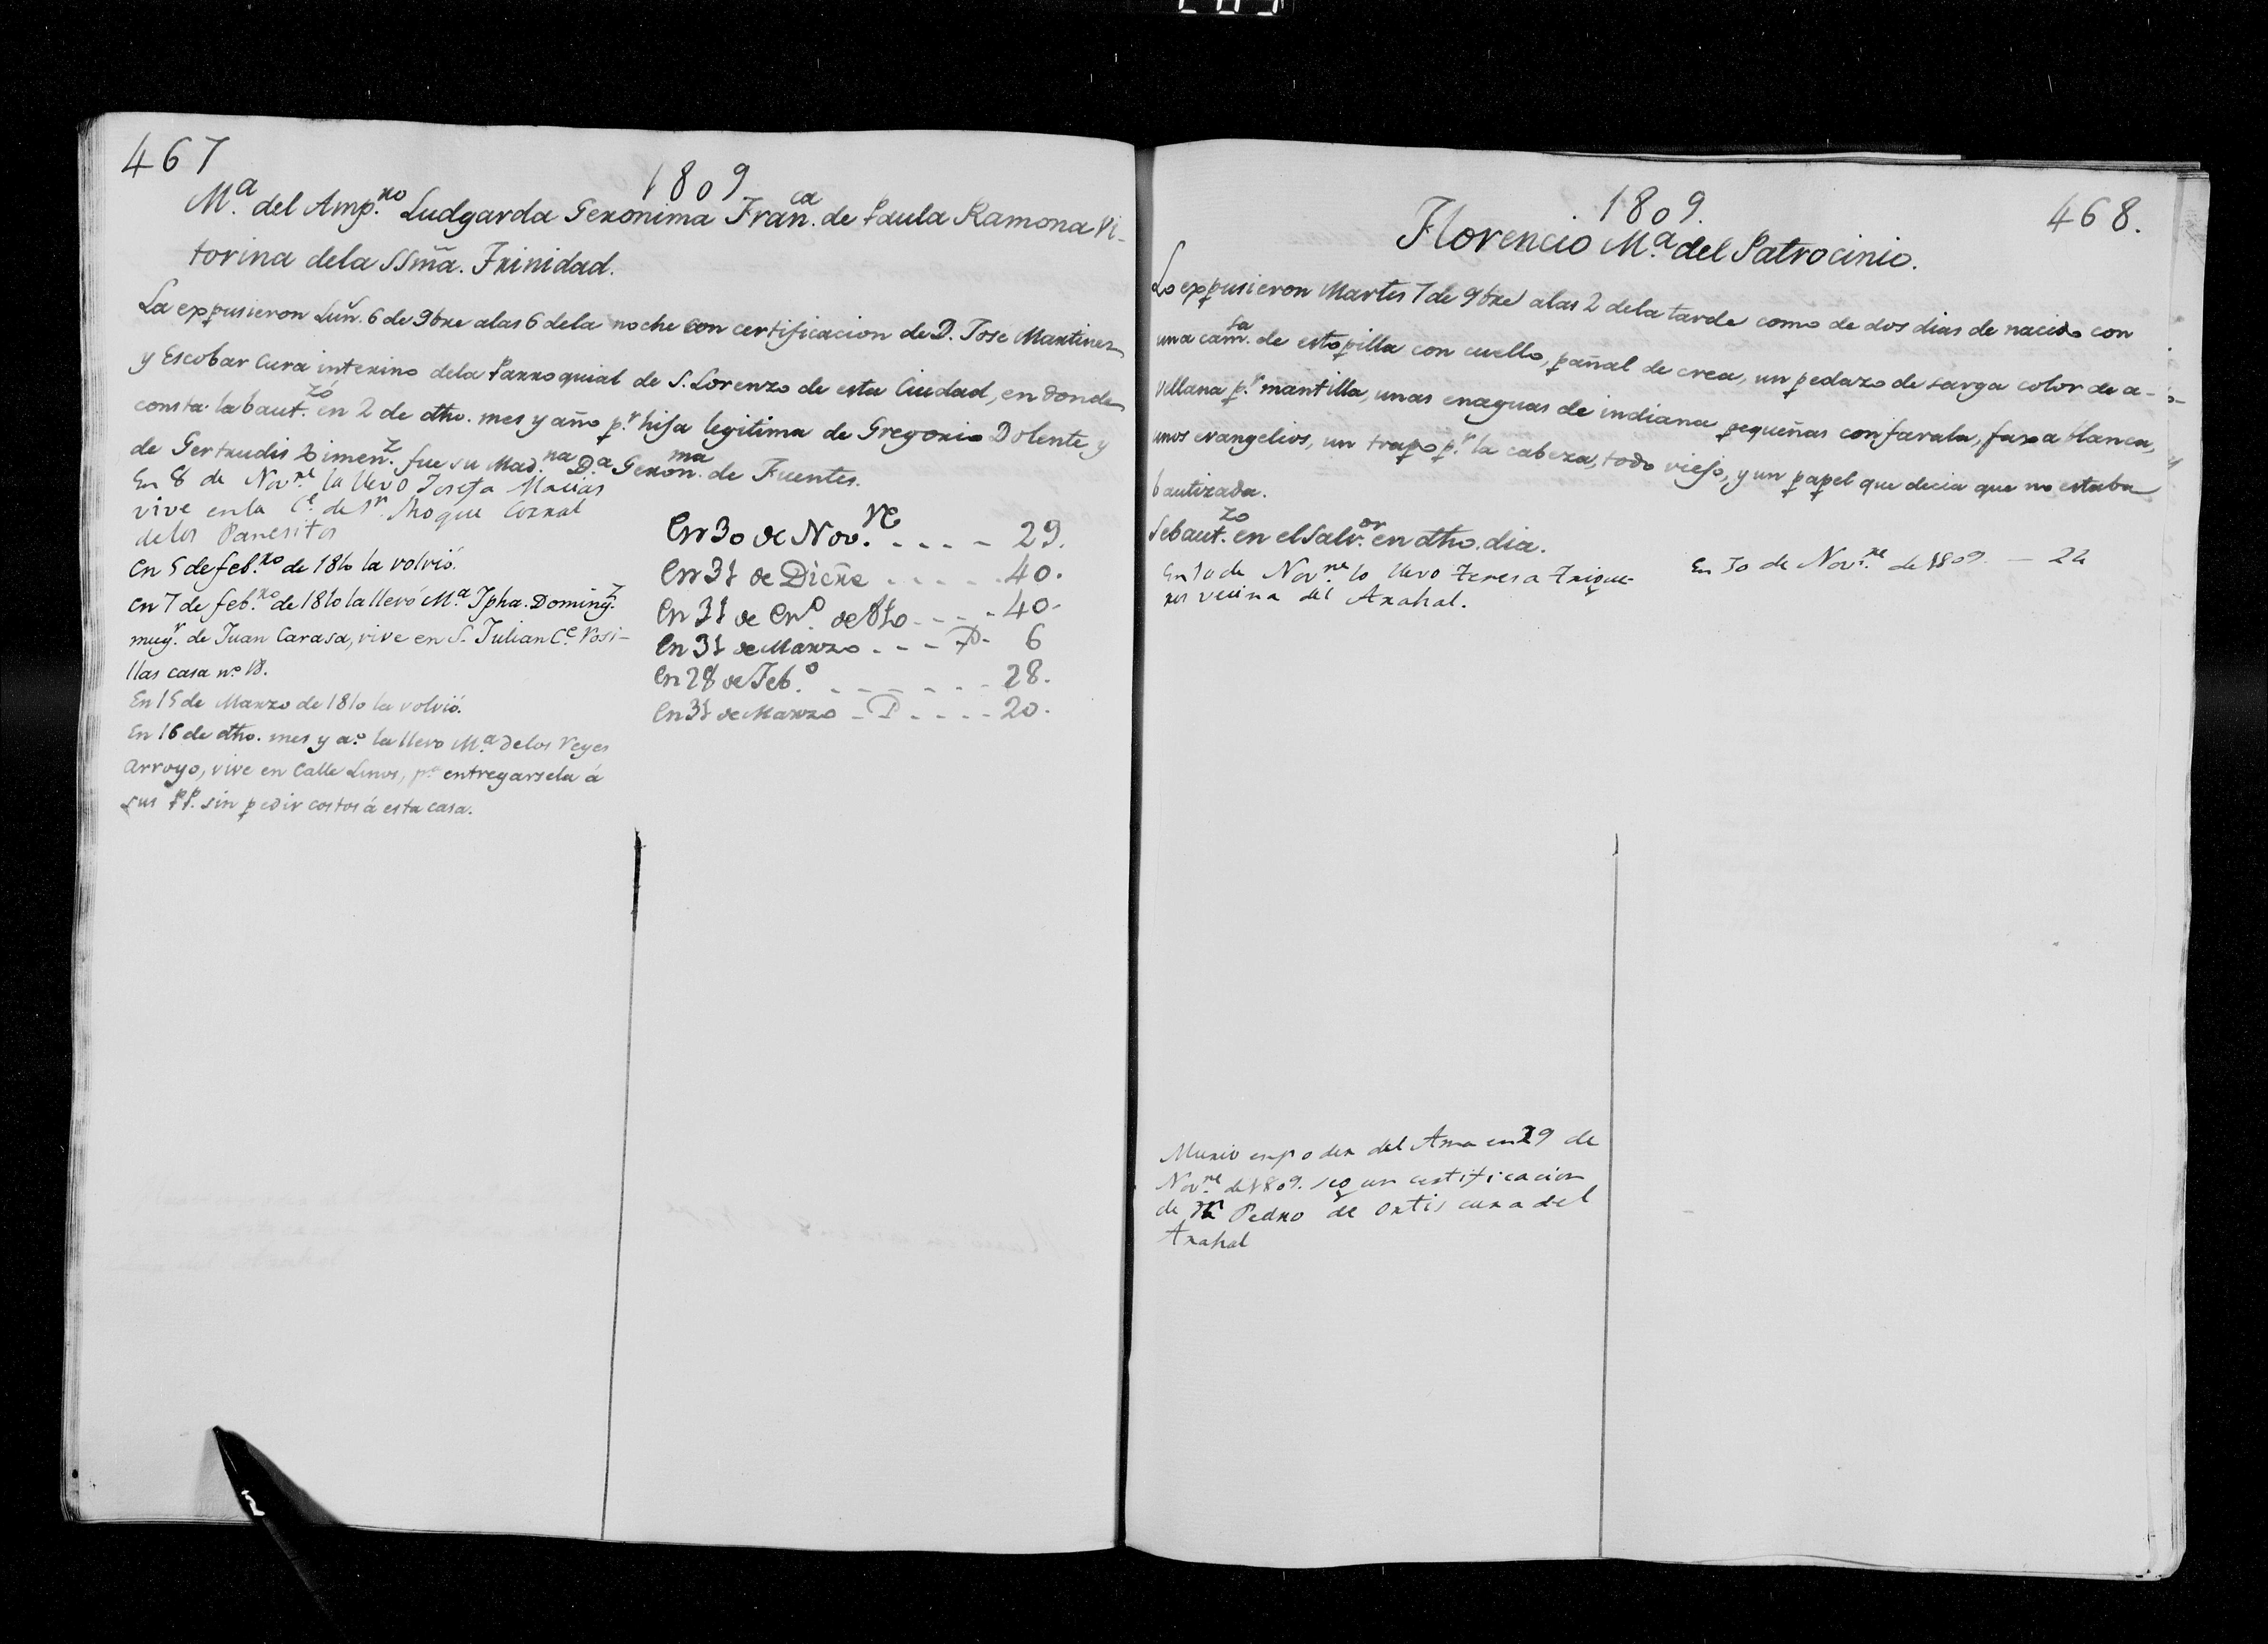 467
1809
M.ª del Amp.ro Ludgarda Geronima Fran.ca de Paula Ramona Vi-
torina dela SSm̃a. Trinidad.
La expusieron Lun. 6 de 9bre alas 6 dela noche con certificacion de D. Jose Martinez
y Escobar Cura interino dela Parroquial de S. Lorenzo de esta Ciudad, en donde
consta la baut.zó en 2 de dho. mes y año p.r hija legitima de Gregorio Dolente y
de Gertrudis Ximen.z fue su Mad.na D.ª Geron.ma de Fuentes.
En 8 de Nov.re la llevo Josefa Macias
vive en la C.e de Sn. Roque Corral
delos Panesitos
En 5 de feb.ro de 1810 la volvió.
En 7 de feb.ro de 1810 la llevó M.ª Jpha. Doming.z
mug.r de Juan Carasa, vive en S. Julian C.e Rosi-
llas casa n.o 18.
En 15 de Marzo de 1810 la volvió.
En 16 de dho. mes y a.o la llevo M.ª delos Reyes
Arroyo, vive en Calle Linos, p.a entregarsela á
sus PP. sin pedir costos á esta casa.
En 30 de Nov.re - - - - 29.
En 31 de Dicre - - - - 40.
En 31 de En.o de 810 - - - - 40.
En 31 de Marzo - - - P- 6
En 28 de Feb.o - - - - - - 28.
En 31 de Marzo - P - - - - 20.
1809.
468.
Florencio M.ª del Patrocinio.
Lo expusieron Martes 7 de 9bre alas 2 dela tarde como de dos dias de nacido con
una cam.sa de estopilla con cuello, pañal de crea, un pedazo de sarga color de a-
vellana p.r mantilla, unas enaguas de indiana pequeñas con farala, faxa blanca,
unos evangelios, un trapo p.r la cabeza, todo viejo, y un papel que decia que no estaba
bautizada.
Se baut.zo en el Salv.or en dho. dia.
En 10 de Nov.re lo llevo Teresa Trigue-
ros vecina del Arahal.
En 30 de Nov.re de 1809. — 22
Murio en poder del Ama en 29 de
Nov.re de 1809. segun certificacion
de Pedro de Ortis cura del
Arahal